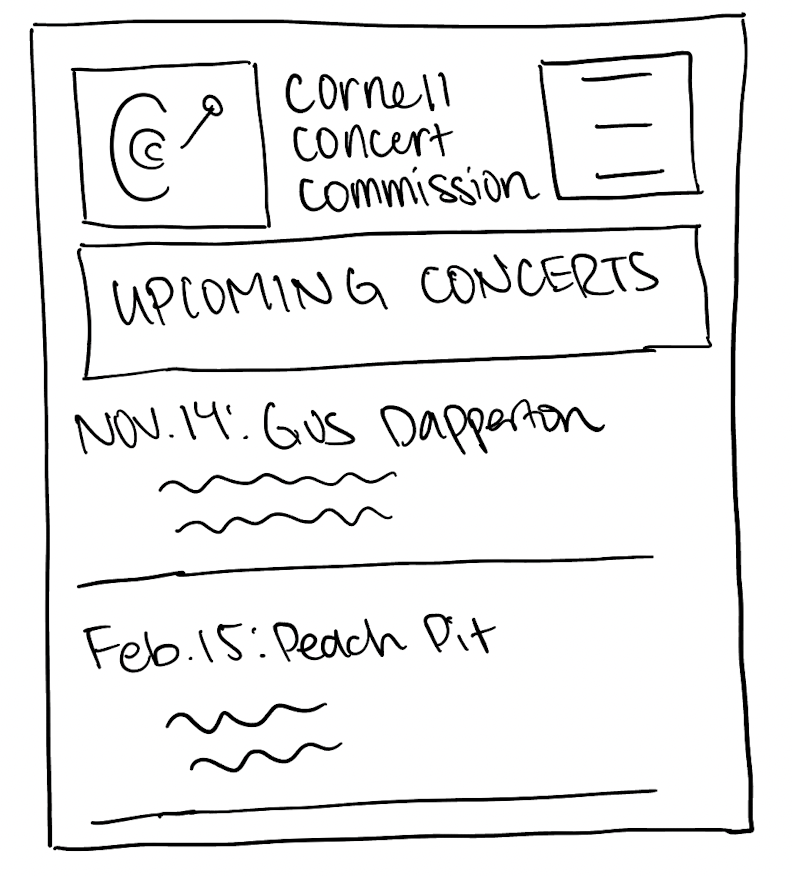 cornell
concert
commission
UPCOMING CONCERTS
NOV.14: Gus Dapperton
Feb.15: Peach Pit